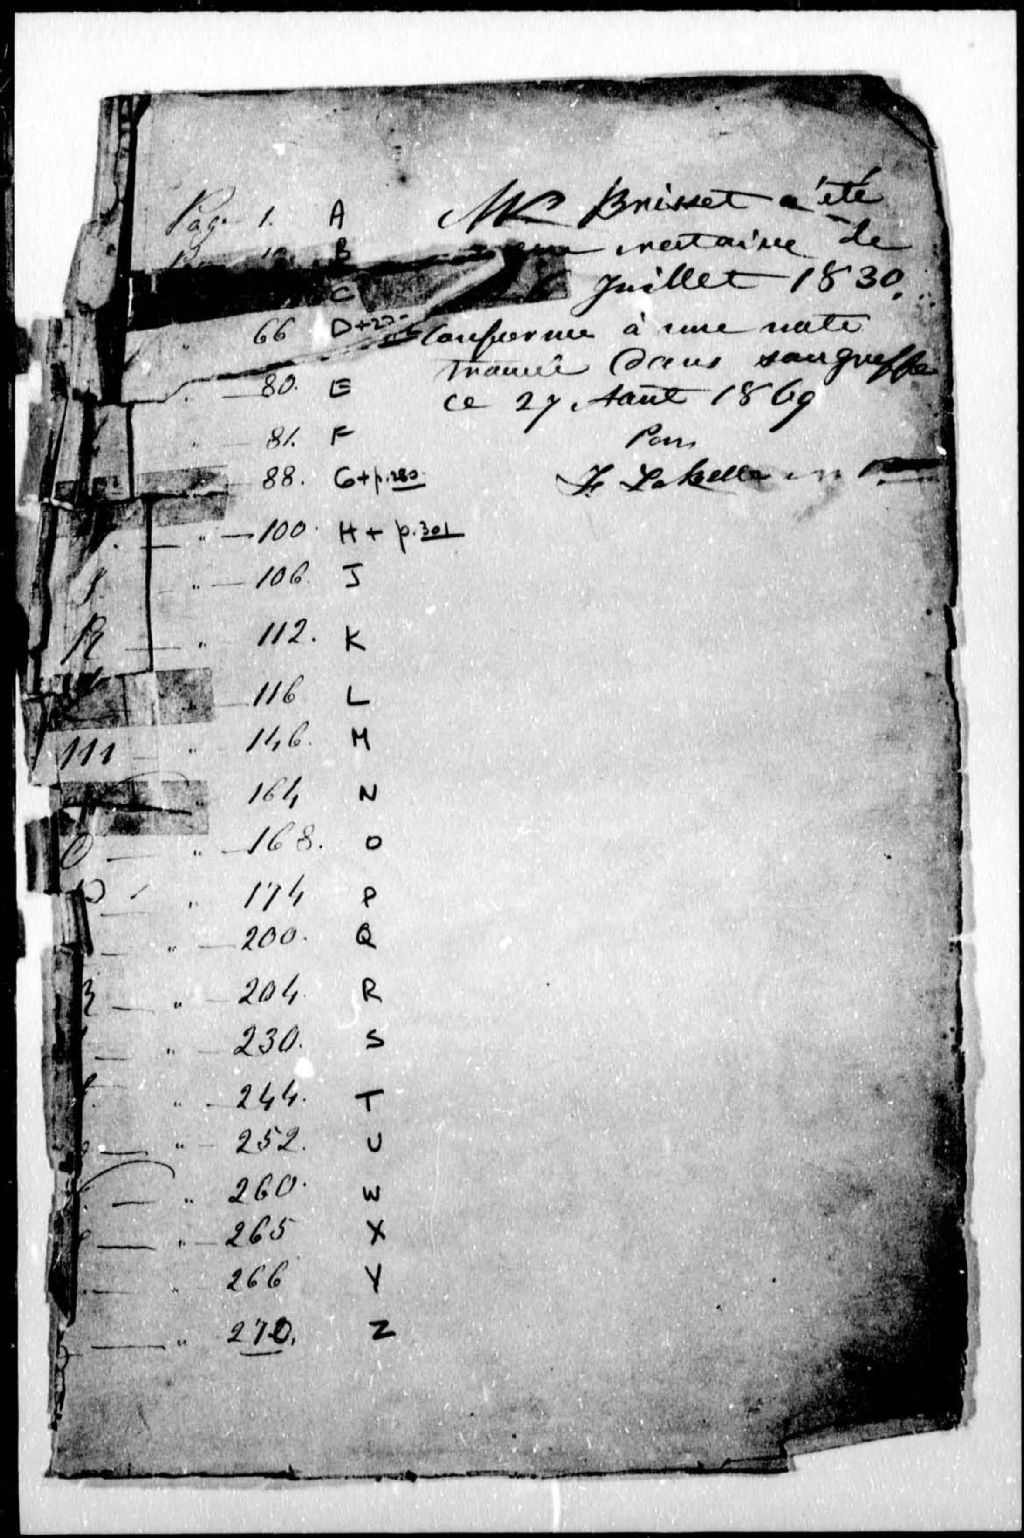 Page 1. A
B
C
66 D+
80. E
81. F
88. G+p.280
100. H+ p.301
J 106. J
K 112. K
116 L
M 146. M
164 N
O 168. O
P 174 P
200. Q
R 204. R
230. S
244. T
252. U
260. W
265 X
266 Y
270. Z
Mr Brisset a été
notaire de
Juillet 1830.
Conforme à une note
trouvée dans son greffe
ce 27 Aout 1869